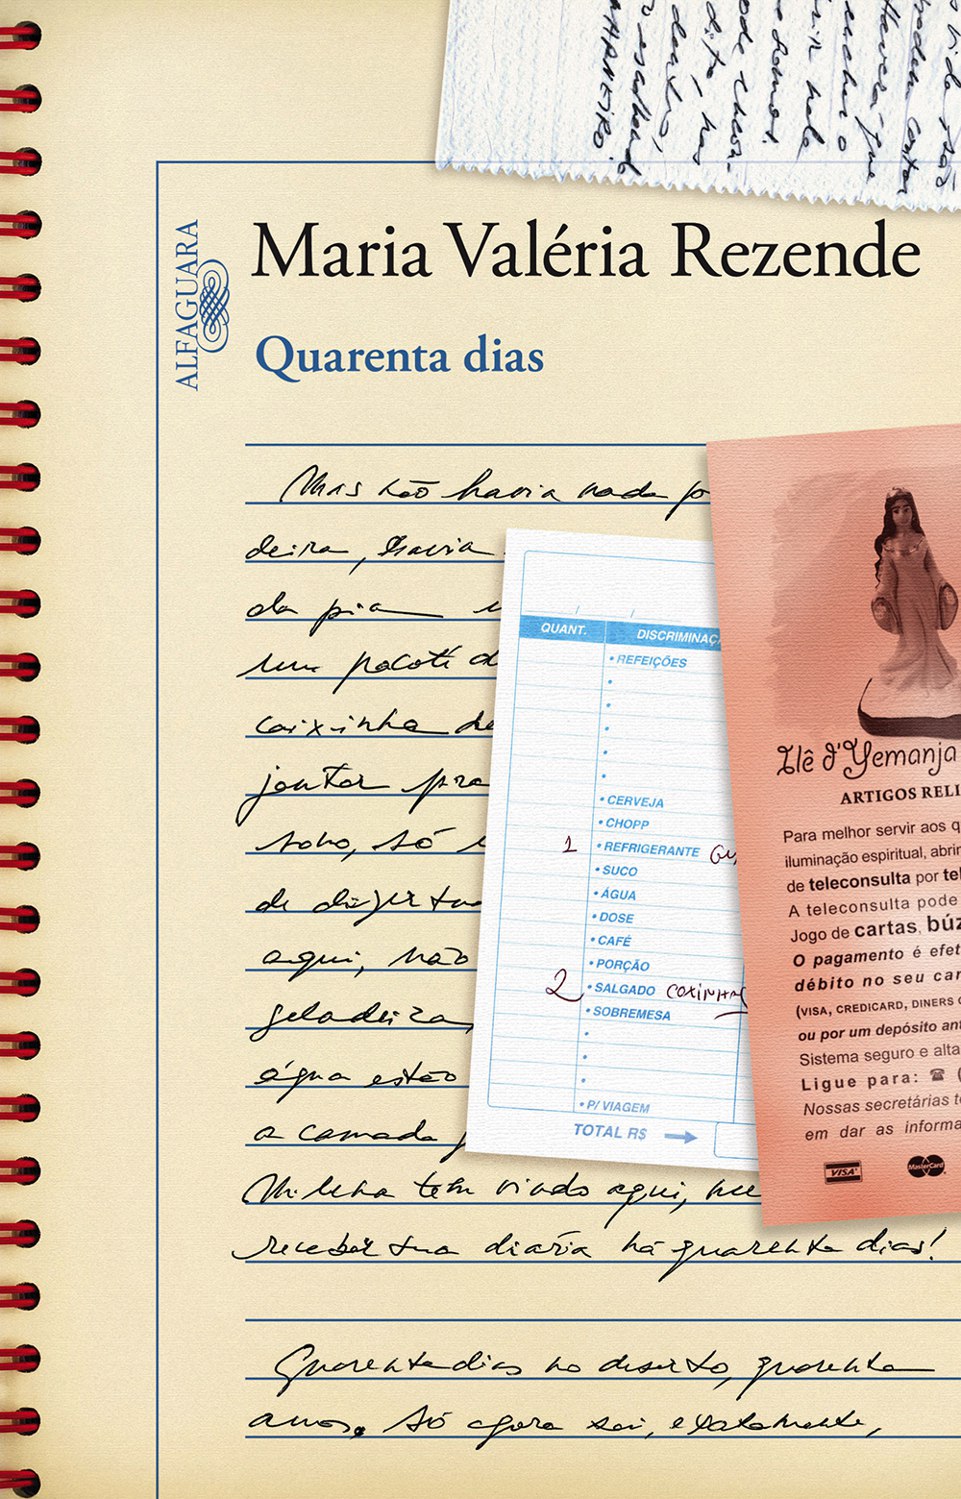 ALFAGUARA
Maria Valéria Rezende
Quarenta dias
Mas não havia nada
deira, havia
da pia
um pacote d
caixinha de
jantar pra
soho, só
de
aqui, não
geladeira,
água estão
a camada
Milena tem vindo aqui,
receber sua diária há quarenta dias!
Quarenta dias no deserto, quarenta
anos. Só agora sei, exatamente,
QUANT. DISCRIMINAÇ
• REFEIÇÕES
• CERVEJA
• CHOPP
1 • REFRIGERANTE GU
• SUCO
• ÁGUA
• DOSE
• CAFÉ
• PORÇÃO
2 • SALGADO COXINHA
• SOBREMESA
• P/ VIAGEM
TOTAL R$
Ilê d'Yemanja
ARTIGOS RELI
Para melhor servir aos q
iluminação espiritual, abrir
de teleconsulta por tel
A teleconsulta pode
Jogo de cartas, búz
O pagamento é efet
débito no seu car
(VISA, CREDICARD, DINERS C
ou por um depósito ant
Sistema seguro e alta
Ligue para: ☎ (
Nossas secretárias t
em dar as informa
VISA MasterCard